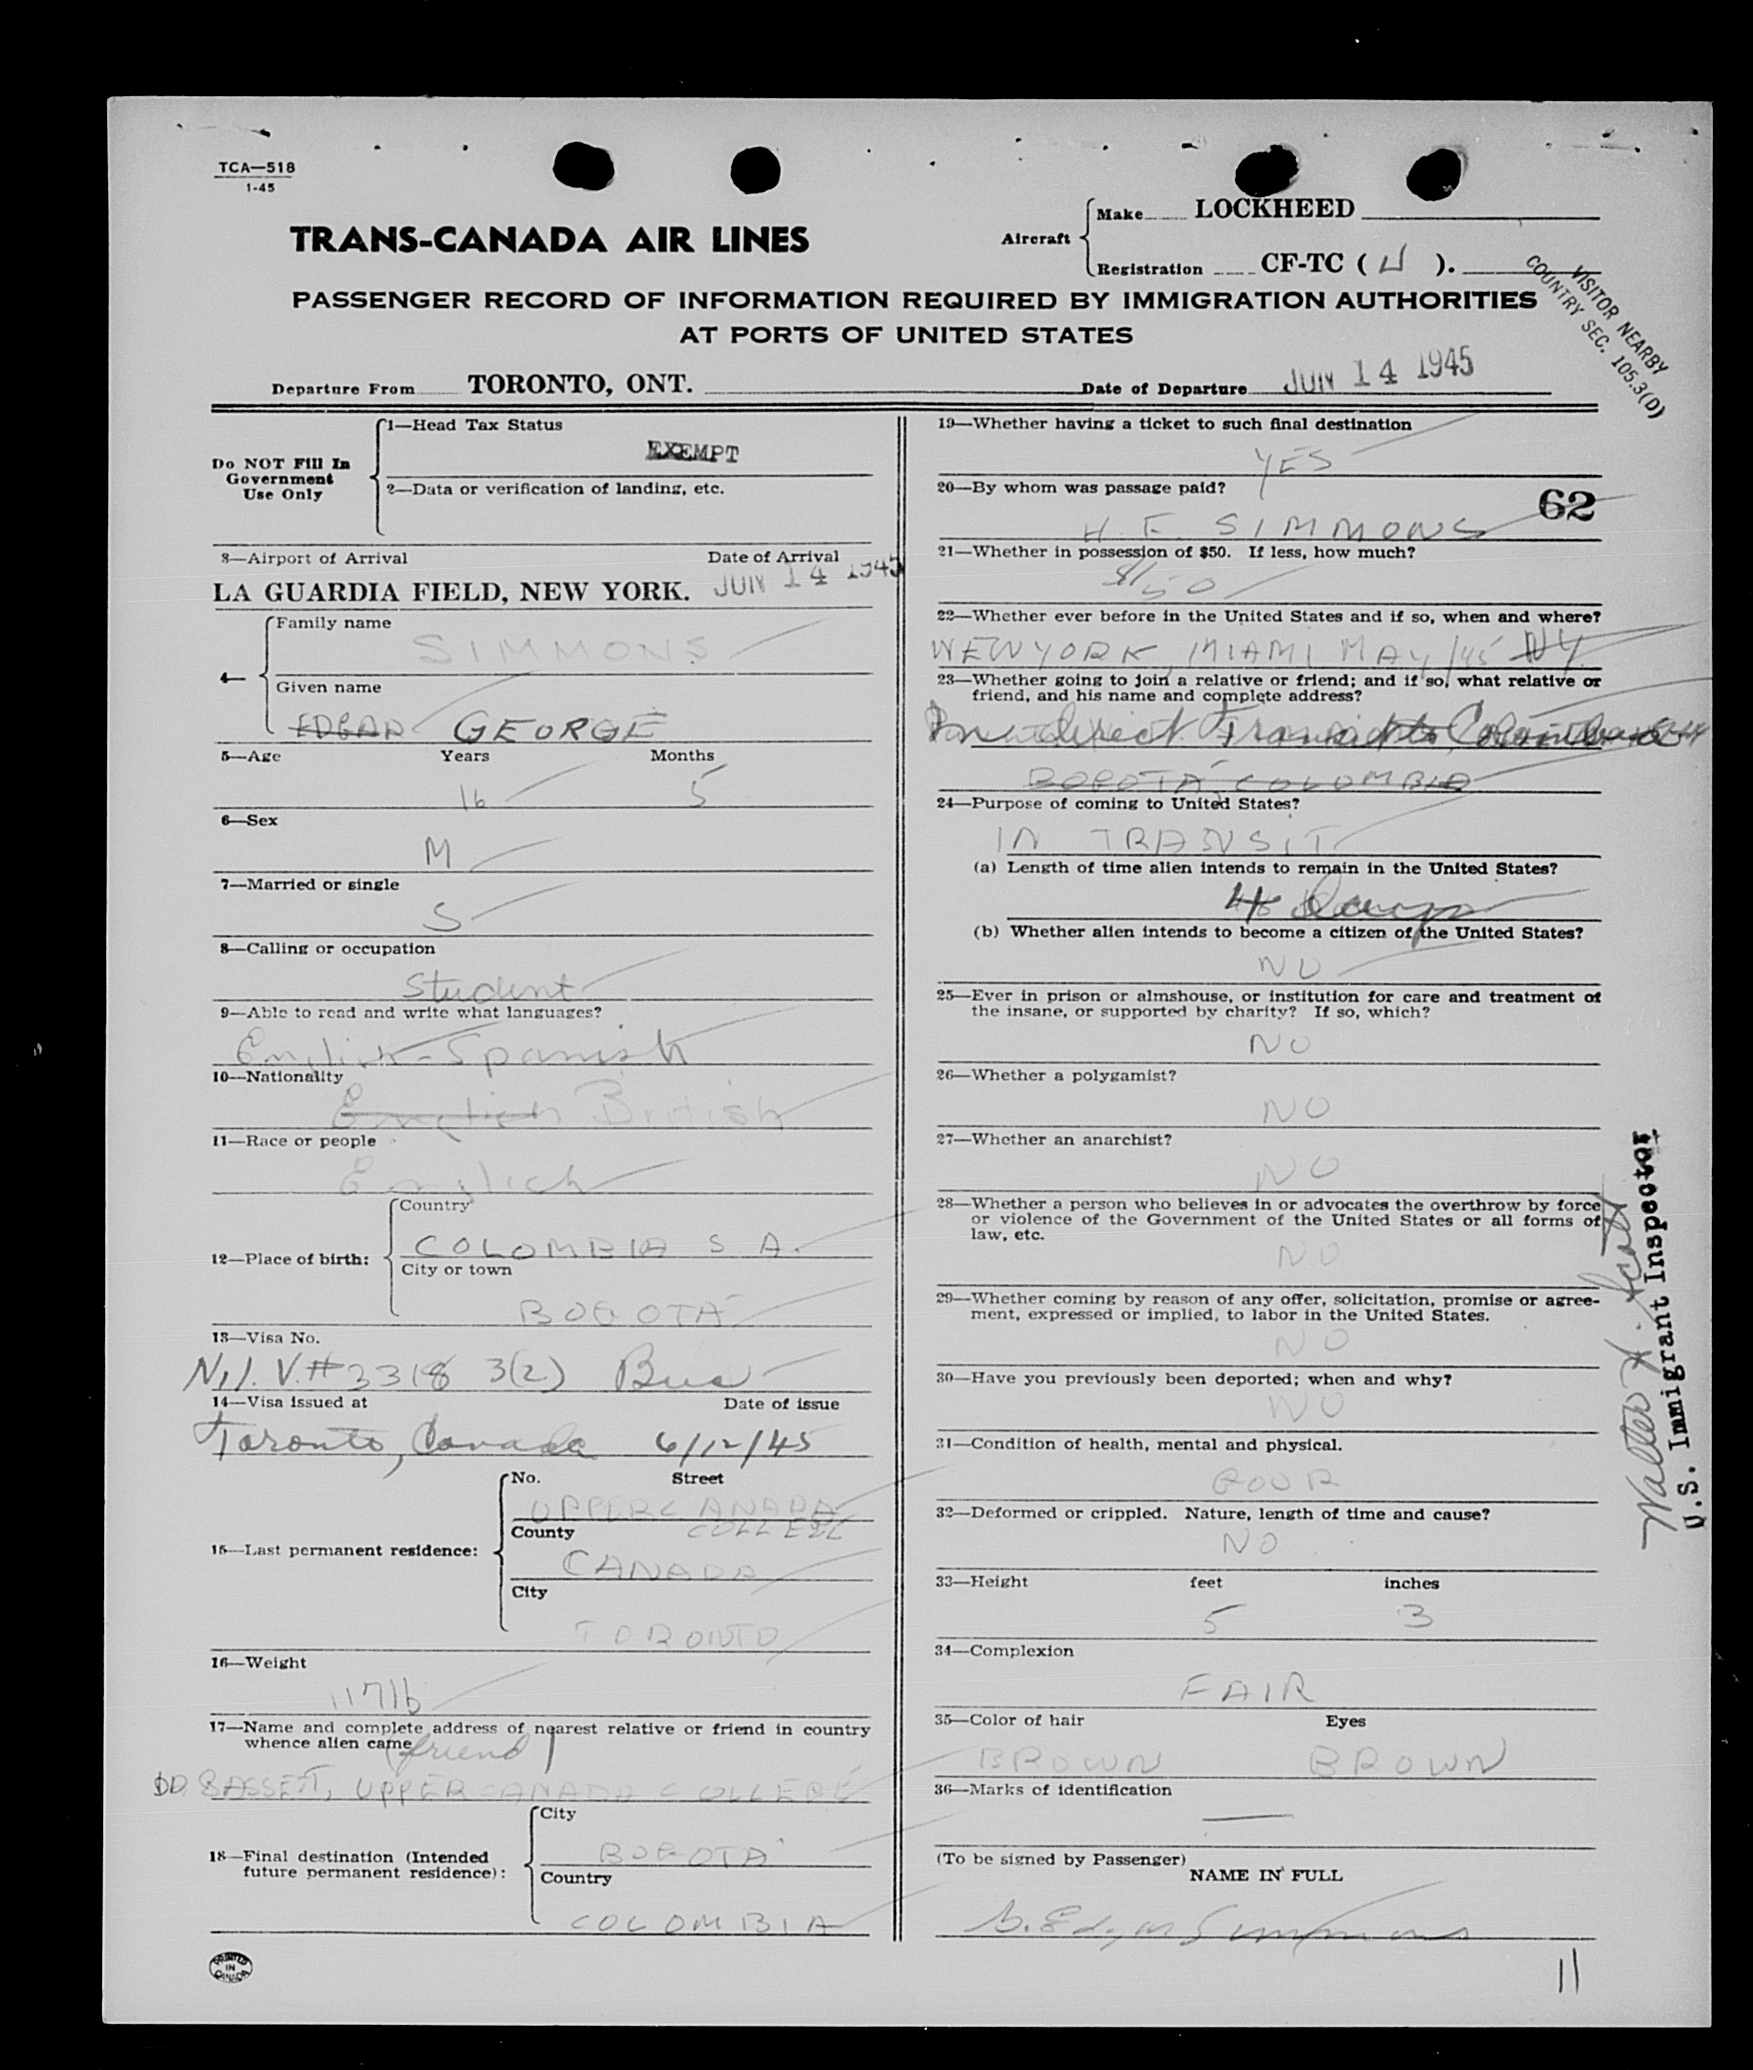 TCA—518
1-45
TRANS-CANADA AIR LINES
Aircraft
Make LOCKHEED
Registration CF-TC ( U ).
VISITOR NEARBY
COUNTRY SEC. 105.3(D)
PASSENGER RECORD OF INFORMATION REQUIRED BY IMMIGRATION AUTHORITIES
AT PORTS OF UNITED STATES
Departure From TORONTO, ONT. Date of Departure JUN 14 1945
Do NOT Fill In
Government
Use Only
1—Head Tax Status
EXEMPT
2—Data or verification of landing, etc.
3—Airport of Arrival Date of Arrival
LA GUARDIA FIELD, NEW YORK. JUN 14 1945
4—
Family name
SIMMONS
Given name
EDGAR GEORGE
5—Age Years Months
16 5
6—Sex
M
7—Married or single
S
8—Calling or occupation
Student
9—Able to read and write what languages?
English-Spanish
10—Nationality
English British
11—Race or people
English
12—Place of birth:
Country
COLOMBIA S A.
City or town
BOGOTÁ
13—Visa No.
N.I. V.# 3318 3(2) Bus
14—Visa issued at Date of issue
Toronto, Canada 6/12/45
15—Last permanent residence:
No. Street
UPPER CANADA
COLLEGE
County
CANADA
City
TORONTO
16—Weight
117lb
17—Name and complete address of nearest relative or friend in country
whence alien came
(friend)
BASSETT, UPPER CANADA COLLEGE
18—Final destination (Intended
future permanent residence):
City
BOGOTÁ
Country
COLOMBIA
19—Whether having a ticket to such final destination
YES
20—By whom was passage paid?
62
H. E. SIMMONS
21—Whether in possession of $50. If less, how much?
50
22—Whether ever before in the United States and if so, when and where?
NEW YORK, MIAMI MAY/45 NY
23—Whether going to join a relative or friend; and if so, what relative or
friend, and his name and complete address?
In direct Transit to Colombia
BOGOTÁ, COLOMBIA
24—Purpose of coming to United States?
IN TRANSIT
(a) Length of time alien intends to remain in the United States?
Days
(b) Whether alien intends to become a citizen of the United States?
NO
25—Ever in prison or almshouse, or institution for care and treatment of
the insane, or supported by charity? If so, which?
NO
26—Whether a polygamist?
NO
27—Whether an anarchist?
NO
28—Whether a person who believes in or advocates the overthrow by force
or violence of the Government of the United States or all forms of
law, etc.
NO
29—Whether coming by reason of any offer, solicitation, promise or agree-
ment, expressed or implied, to labor in the United States.
NO
30—Have you previously been deported; when and why?
NO
31—Condition of health, mental and physical.
GOOD
32—Deformed or crippled. Nature, length of time and cause?
NO
33—Height feet inches
5 3
34—Complexion
FAIR
35—Color of hair Eyes
BROWN BROWN
36—Marks of identification
—
(To be signed by Passenger)
NAME IN FULL
G. Edgar Simmons
Walter H.
U.S. Immigrant Inspector
PRINTED
IN
CANADA
11